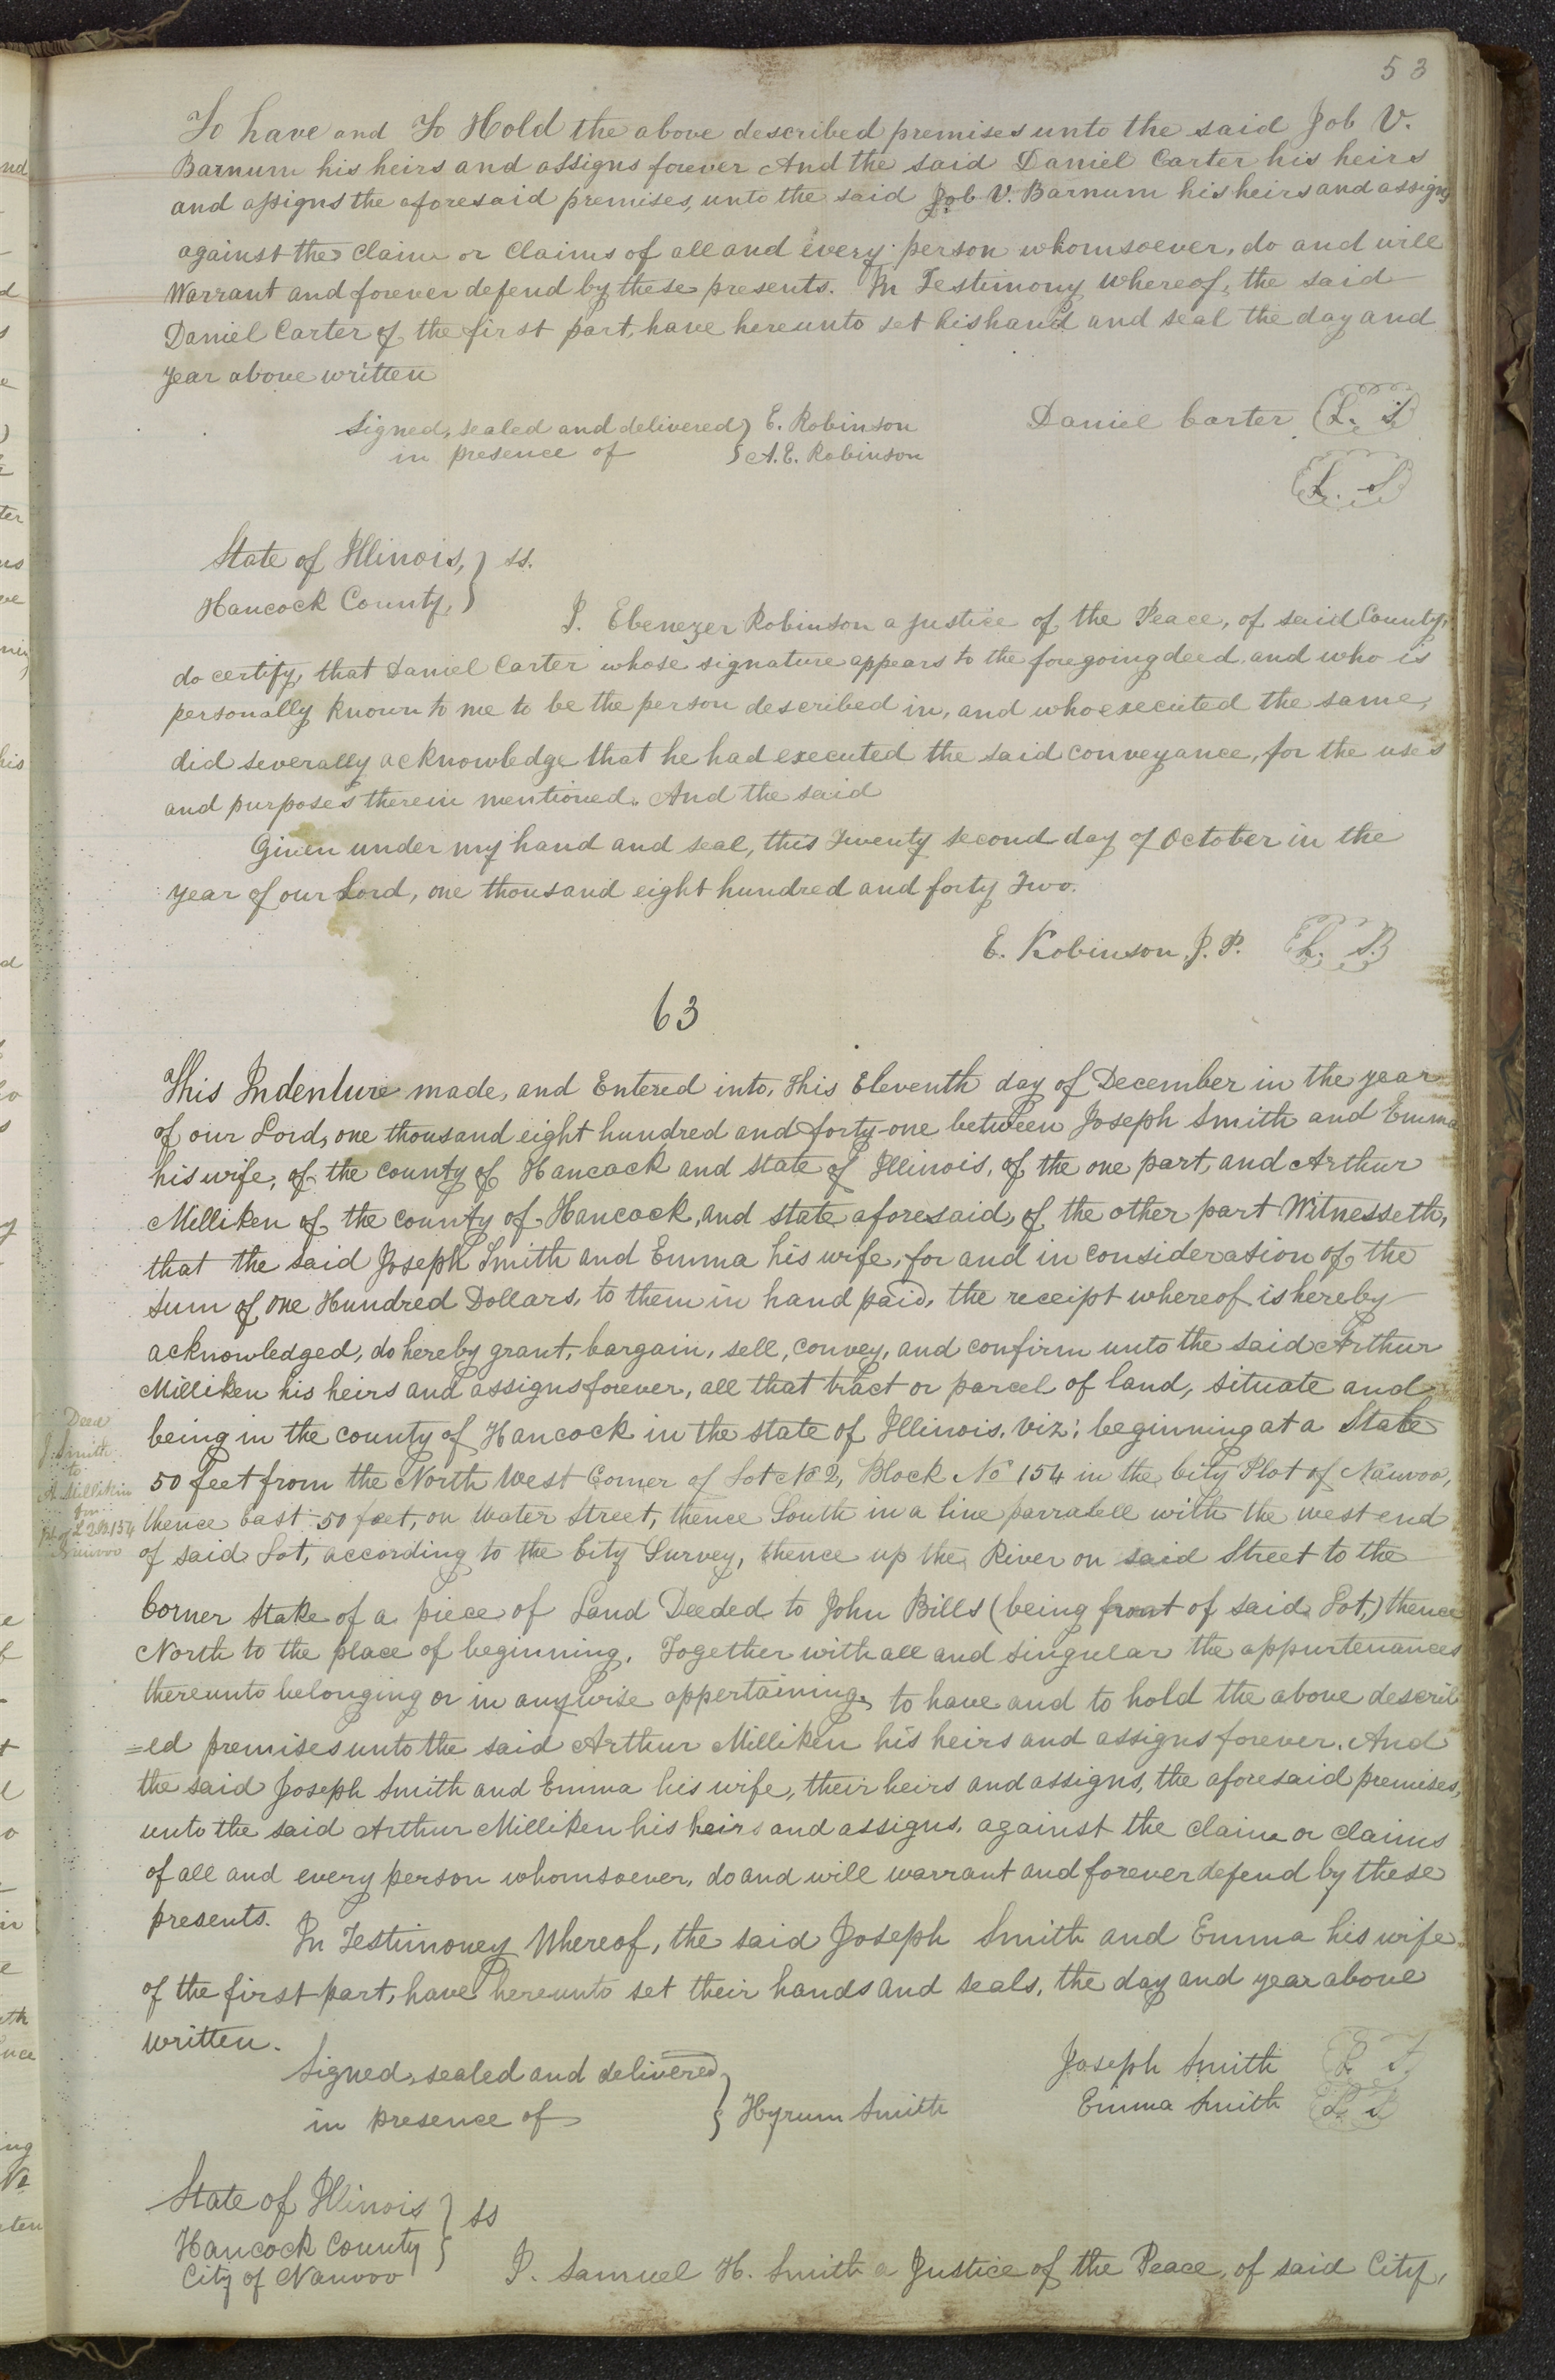 53
To have and To Hold the above described premises unto the said Job V.
Barnum his heirs and assigns forever And the said Daniel Carter his heirs
and assigns the aforesaid premises, unto the said Job V. Barnum his heirs and assigns
against the claim or claims of all and every person whomsoever, do and will
Warrant and forever defend by these presents. In Testimony Whereof, the said
Daniel Carter of the first part, have hereunto set his hand and seal the day and
year above written
Signed, sealed and delivered } E. Robinson Daniel Carter L. S.
in presence of } A. E. Robinson
L. S
State of Illinois, } ss.
Hancock County, }
I. Ebenezer Robinson a justice of the Peace, of said County,
do certify, that Daniel Carter whose signature appears to the foregoing deed and who is
personally known to me to be the person described in, and who executed the same,
did severally acknowledge that he had executed the said conveyance, for the uses
and purposes therein mentioned. And the said
Given under my hand and seal, this Twenty second day of October in the
year of our Lord, one thousand eight hundred and forty Two.
E. Robinson J. P. L. S.
63
This Indenture made, and Entered into, This Eleventh day of December in the year
of our Lord, one thousand eight hundred and forty-one between Joseph Smith and Emma
his wife, of the county of Hancock and state of Illinois, of the one part, and Arthur
Milliken of the county of Hancock, and state aforesaid, of the other part Witnesseth,
that the said Joseph Smith and Emma his wife, for and in consideration of the
sum of one Hundred Dollars, to them in hand paid, the receipt whereof is hereby
acknowledged, do hereby grant, bargain, sell, convey, and confirm unto the said Arthur
Milliken his heirs and assigns forever, all that tract or parcel of land, situate and
being in the county of Hancock in the state of Illinois, viz: beginning at a Stake
50 feet from the North West Corner of Lot No 2, Block No 154 in the City Plot of Nauvoo,
thence East 50 feet, on Water Street, thence South in a line parralell with the west end
of said Lot, according to the City Survey, thence up the River on said Street to the
Corner Stake of a piece of Land Deeded to John Bills (being front of said Lot,) thence
North to the place of beginning. Together with all and singular the appurtenances
thereunto belonging or in anywise appertaining, to have and to hold the above describ
=ed premises unto the said Arthur Milliken his heirs and assigns forever. And
the said Joseph Smith and Emma his wife, their heirs and assigns, the aforesaid premises,
unto the said Arthur Milliken his heirs and assigns, against the claim or claims
of all and every person whomsoever, do and will warrant and forever defend by these
presents.
In Testimoney Whereof, the said Joseph Smith and Emma his wife
of the first part, have hereunto set their hands and seals, the day and year above
written.
Deed
J. Smith
to
A. Millikin
L 2 B 154
Nauvoo
Signed, sealed and delivered } Joseph Smith L S
in presence of } Hyrum Smith Emma Smith L S
State of Illinois } ss
Hancock County }
City of Nauvoo
I. Samuel H. Smith a Justice of the Peace, of said City,